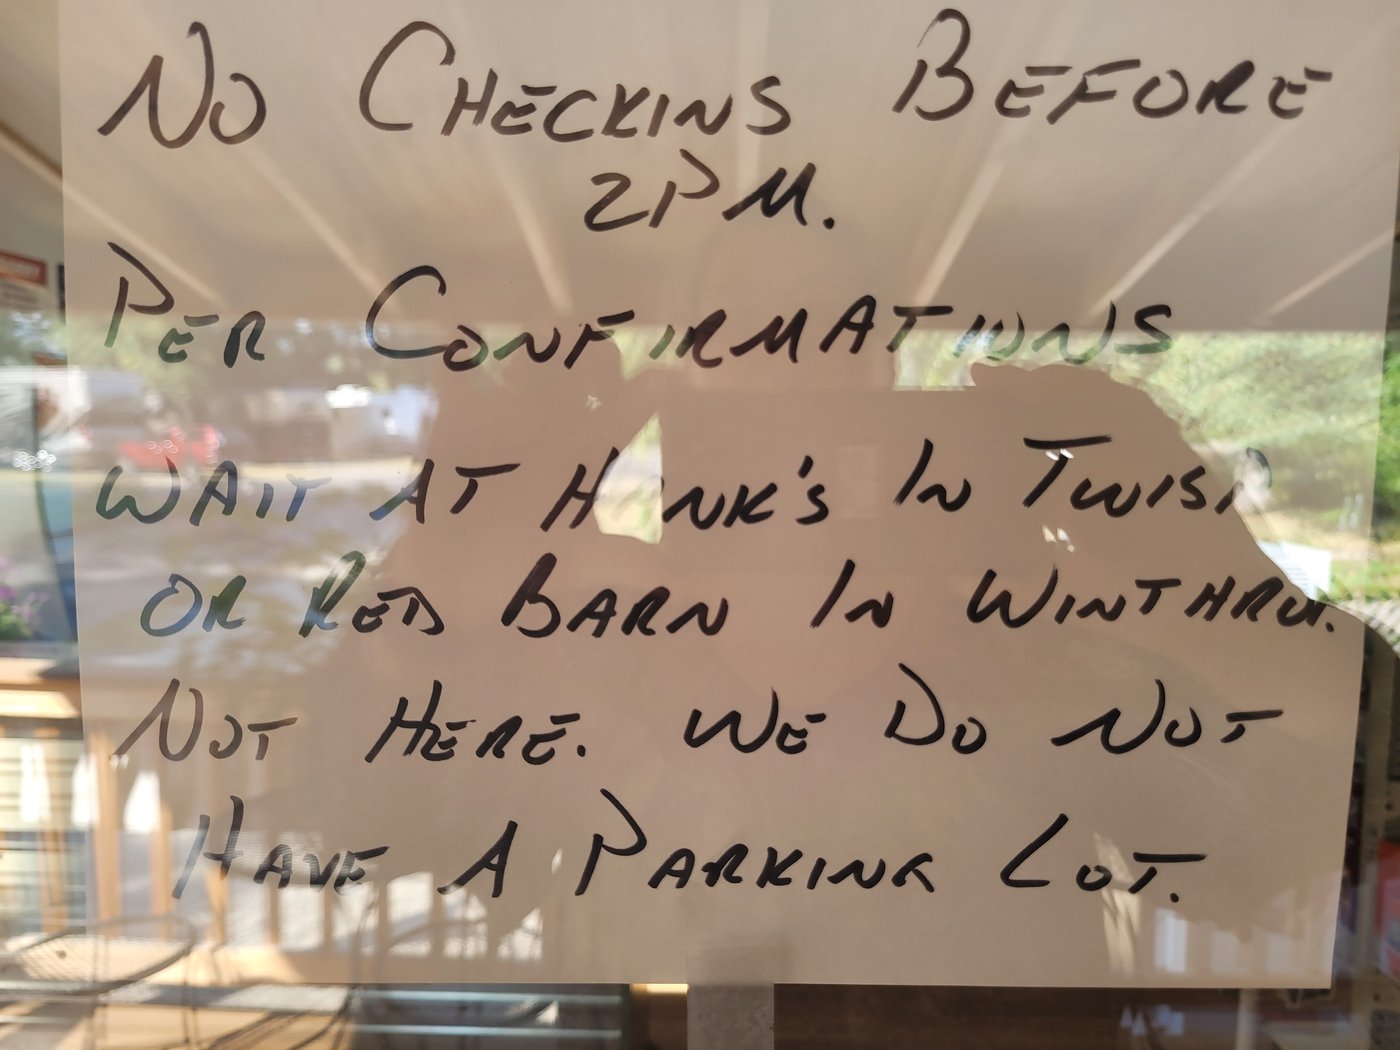 NO CHECKINS BEFORE
2PM.
PER CONFIRMATIONS
WAIT AT HANK'S IN TWISP
OR RED BARN IN WINTHROP.
NOT HERE. WE DO NOT
HAVE A PARKING LOT.